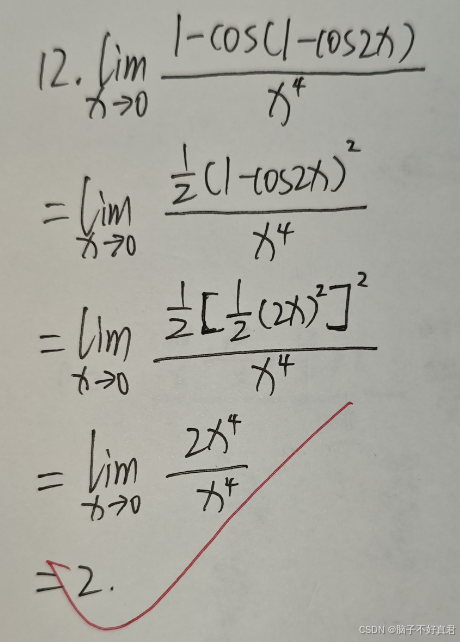 12. lim x→0 (1-cos(1-cos2x))/x⁴
= lim x→0 (½(1-cos2x)²)/x⁴
= lim x→0 (½[½(2x)²]²)/x⁴
= lim x→0 2x⁴/x⁴
= 2.
CSDN @脑子不好真君